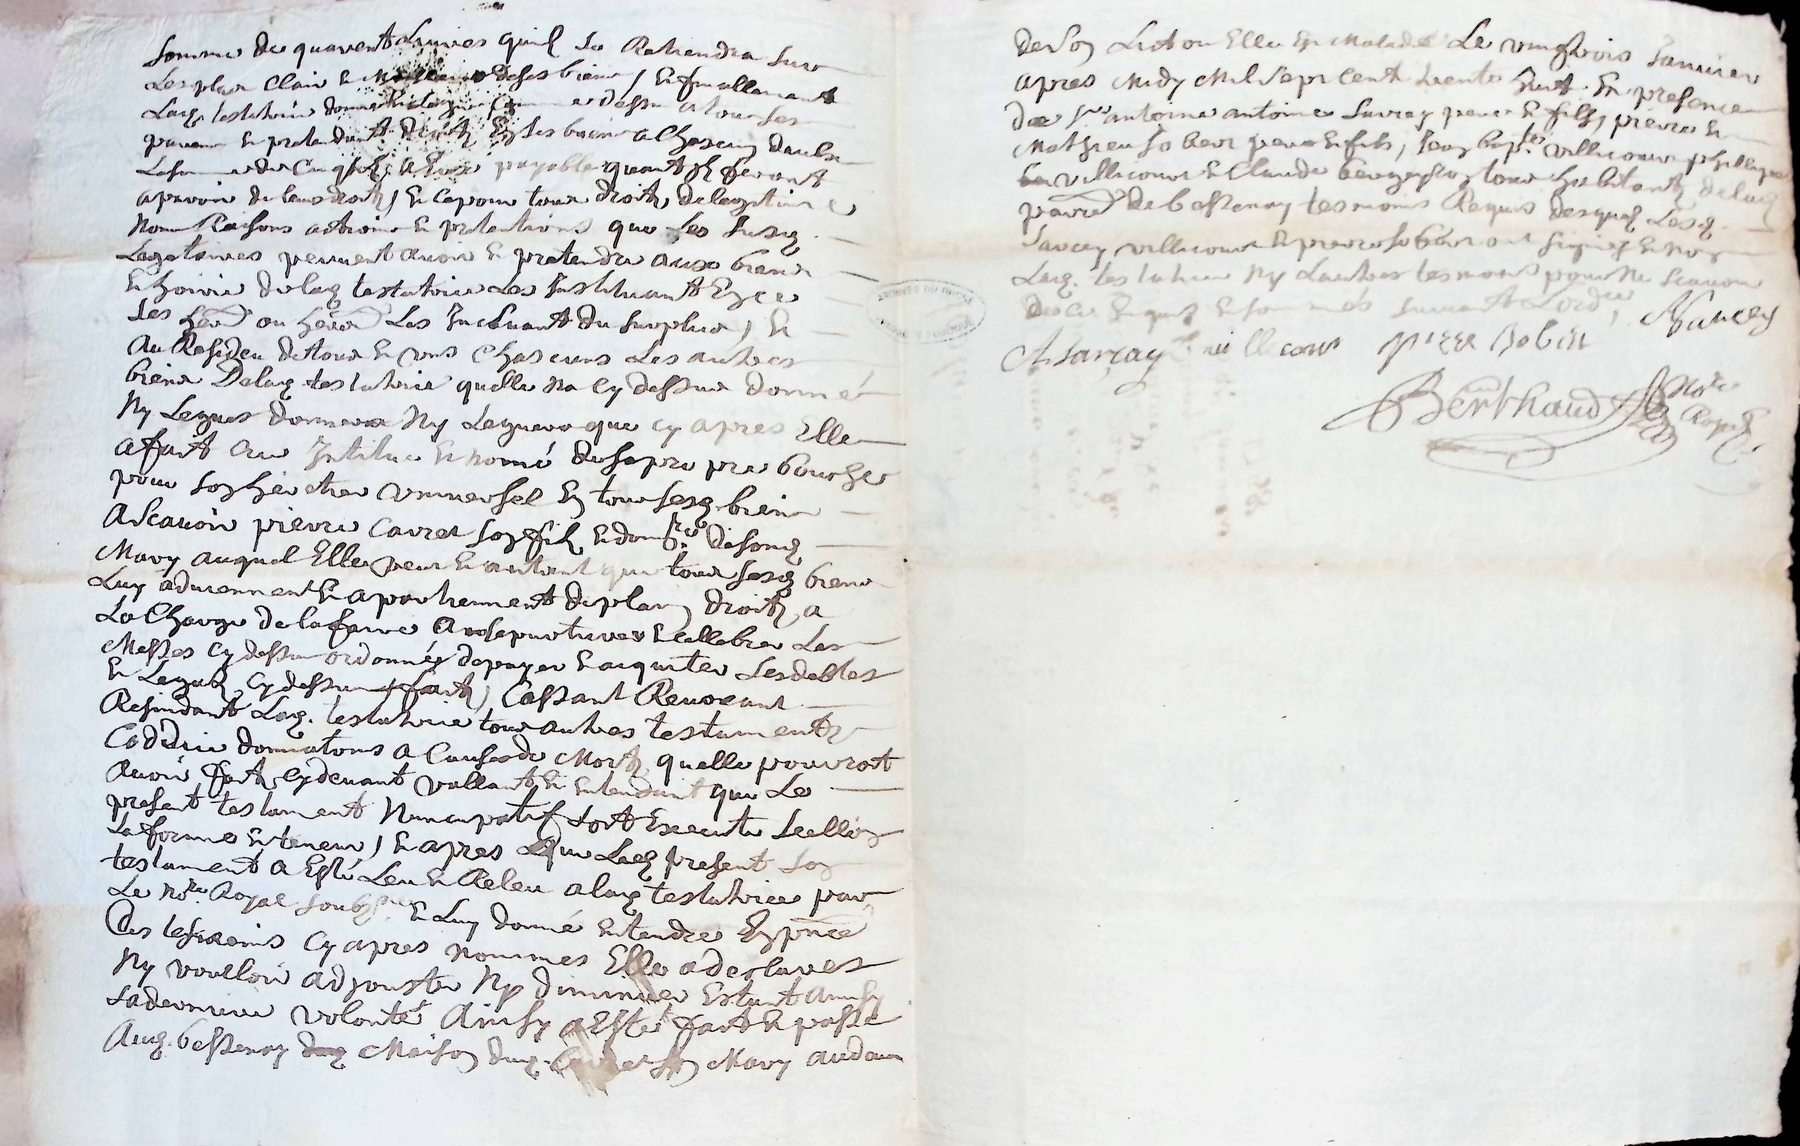 somme de quarent Livres quil se Retiendra sur
Les plus Clair et de ses biens, et finallement
Lad. testatrice donne et Legue comme dessus a tous ses
parans et pretendant droitz en ses biens a Chascung deulx
La somme de Cinq solz payable quant ilz feront
aparoir de leurs droitz, et ce pour tous droitz de legitime
Noms Raisons actions et pretentions que les susd.
Legataires peuvent avoir et pretendre aux biens
et hoirie de lad. testatrice Les Instituant en ce
ses herers ou herers Les Excluant du surplus, et
Au Resideu de tous et uns Chascuns Les autres
biens De lad. testatrice quelle na cy dessus donné
Ny Legues donnera Ny Leguera que cy apres Elle
a fait cree Istitue et nomé de sa pro pre bouche
pour son heretier universel en tous sesd. biens
A Scavoir pierre Carret son filz et dond. sond.
Mary auquel Elle veut et autant que tous sesd. biens
Luy adviennent et apartiennent de plain droitz, a
La Charge de la faire ansepurturer et cellebrer Les
Messes cy dessus ordonnées de payer et aquiter Les debtes
et Legatz cy dessus faitz, Cassant Revocant
Resindant Lad. testatrice tous autres testamentz
Codicille donnations a Causes de Mortz quelle pouroit
avoir faitz cy devant vallant et entendant que Le
present testament Nuncupatif soit Executé scellon
La forme et teneur, et apres que Led. present son
testament a Esté Leu et Releu a lad. testatrice par
Le Nore. Royal soubzné et Luy donné entendre En pnce
Des tesmoins cy apres nommes Elle a desclares
Ny voulloir adjouster Ny diminuer Estant ainsy
sa derniere volonté Ainsy a Esté fait et passé
Aud. bessenay Maison dud. Carret son Mary audavan
De son Lict ou Elle est Malade Le vingtrois Janvier
apres Midy Mil sept Cent trente huit En presence
De Srs antoine antoine Sarcey pere et filz, pierre et
Mathieu Jobert pere et fils, Jean bapte villecourt philippe
villecourt et Claude tous habitantz de lad.
parre de bessenay tesmoins Requis desquelz Lesd.
Sarcey villecourt et pierre Jobert ont signez et non
Lad. testatrice Ny Lautres tesmoins pour ne scavoir
de ce Enquis et sommés suivant Lordre, A Sarcey
A Sarcey villecourt pierr Jobert
Berthaud Nore
Royal